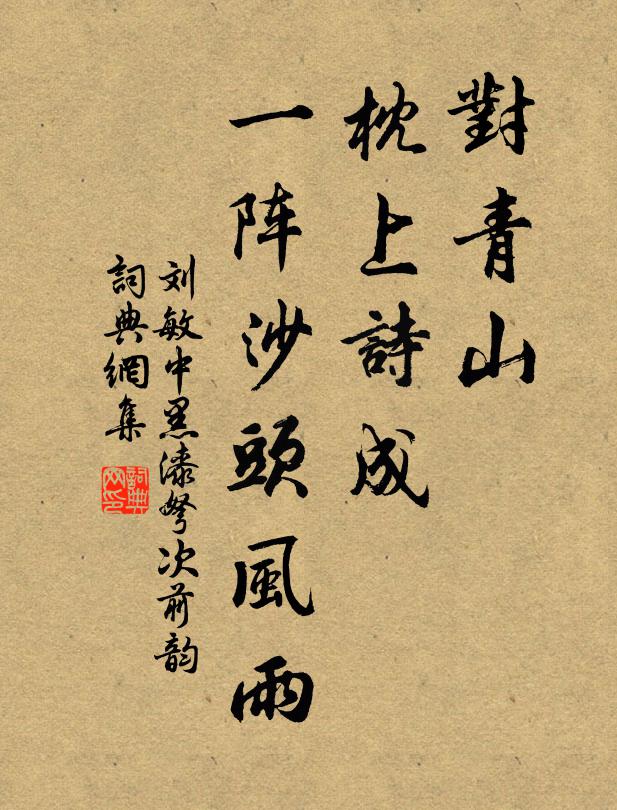 對青山
枕上詩成
一阵沙頭風雨
刘敏中黑漆弩次前韵
詞典網集
詞典网印